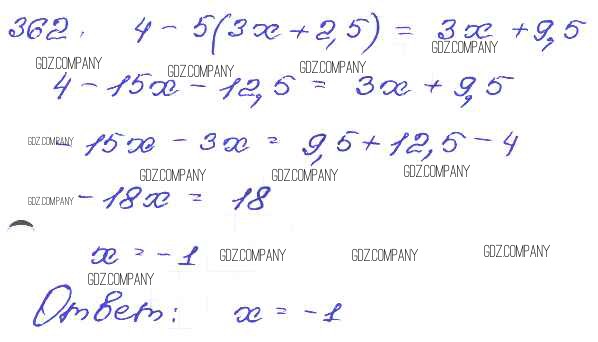 362. 4 - 5(3x + 2,5) = 3x + 9,5
GDZ.COMPANY GDZ.COMPANY GDZ.COMPANY GDZ.COMPANY
4 - 15x - 12,5 = 3x + 9,5
GDZ.COMPANY
- 15x - 3x = 9,5 + 12,5 - 4
GDZ.COMPANY GDZ.COMPANY GDZ.COMPANY
GDZ.COMPANY
- 18x = 18
x = - 1
GDZ.COMPANY GDZ.COMPANY GDZ.COMPANY
GDZ.COMPANY
Ответ: x = - 1